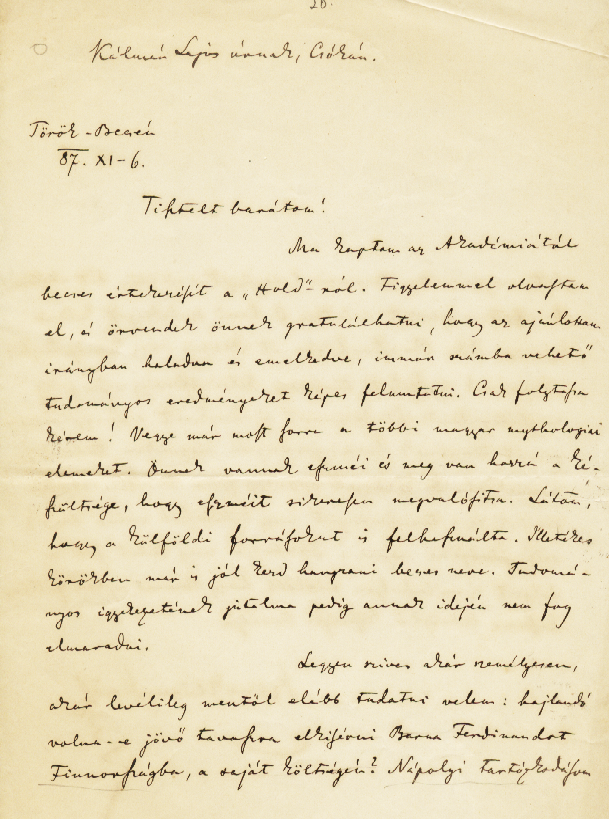 20.
Kálmán Lajos úrnak, Csókán.
Török-Becsén
87. XI-6.
Tisztelt barátom!
Ma kaptam az Akadémiától
becses értekezését a „Hold"-ról. Figyelemmel olvastam
el, és örvendek önnek gratulálhatni, hogy az ajánlottam
irányban haladva és emelkedve, immár számba vehető
tudományos eredményeket képes felmutatni. Csak folytassa
kérem! Vegye már most sorra a többi magyar mythologiai
elemeket. Önnek vannak eszméi és meg van hozzá a ké-
szültsége, hogy eszméit sikeresen megvalósítsa. Látom,
hogy a külföldi forrásokat is felhasználta. Illetékes
körökben már is jól kezd hangzani becses neve. Tudomá-
nyos igyekezetének jutalma pedig annak idején nem fog
elmaradni.
Legyen szives akár személyesen,
akár levélileg mentől elébb tudatni velem: hajlandó
volna-e jövő tavaszra elkisérni Barna Ferdinandot
Finnországba, a saját költségén? Nápolyi tartózkodásom